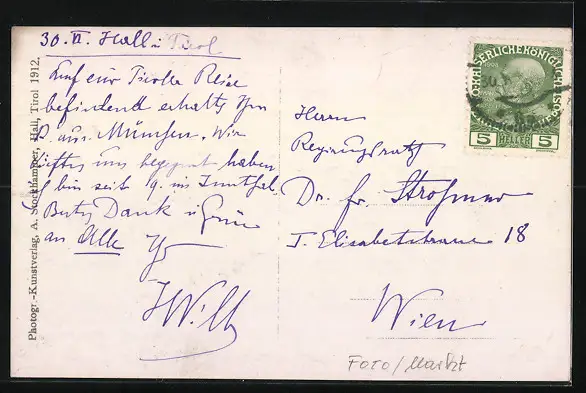 30. VI. Hall i Tirol
Auf einer Tiroler Reise
befindend erhalte Ihre
K. aus München. Wir
uns begegnet haben
bin seit 9. im Innthal.
Besten Dank u Grüße
an Alle Ihr
Photogr.-Kunstverlag, A. Stockhammer, Hall, Tirol 1912.
KAISERLICHE KÖNIGLICHE ÖSTERR
5 HELLER 5
Herrn
Regierungsrath
Dr. Fr.
I. Elisabethstrasse 18
Wien
FOTO / Markt